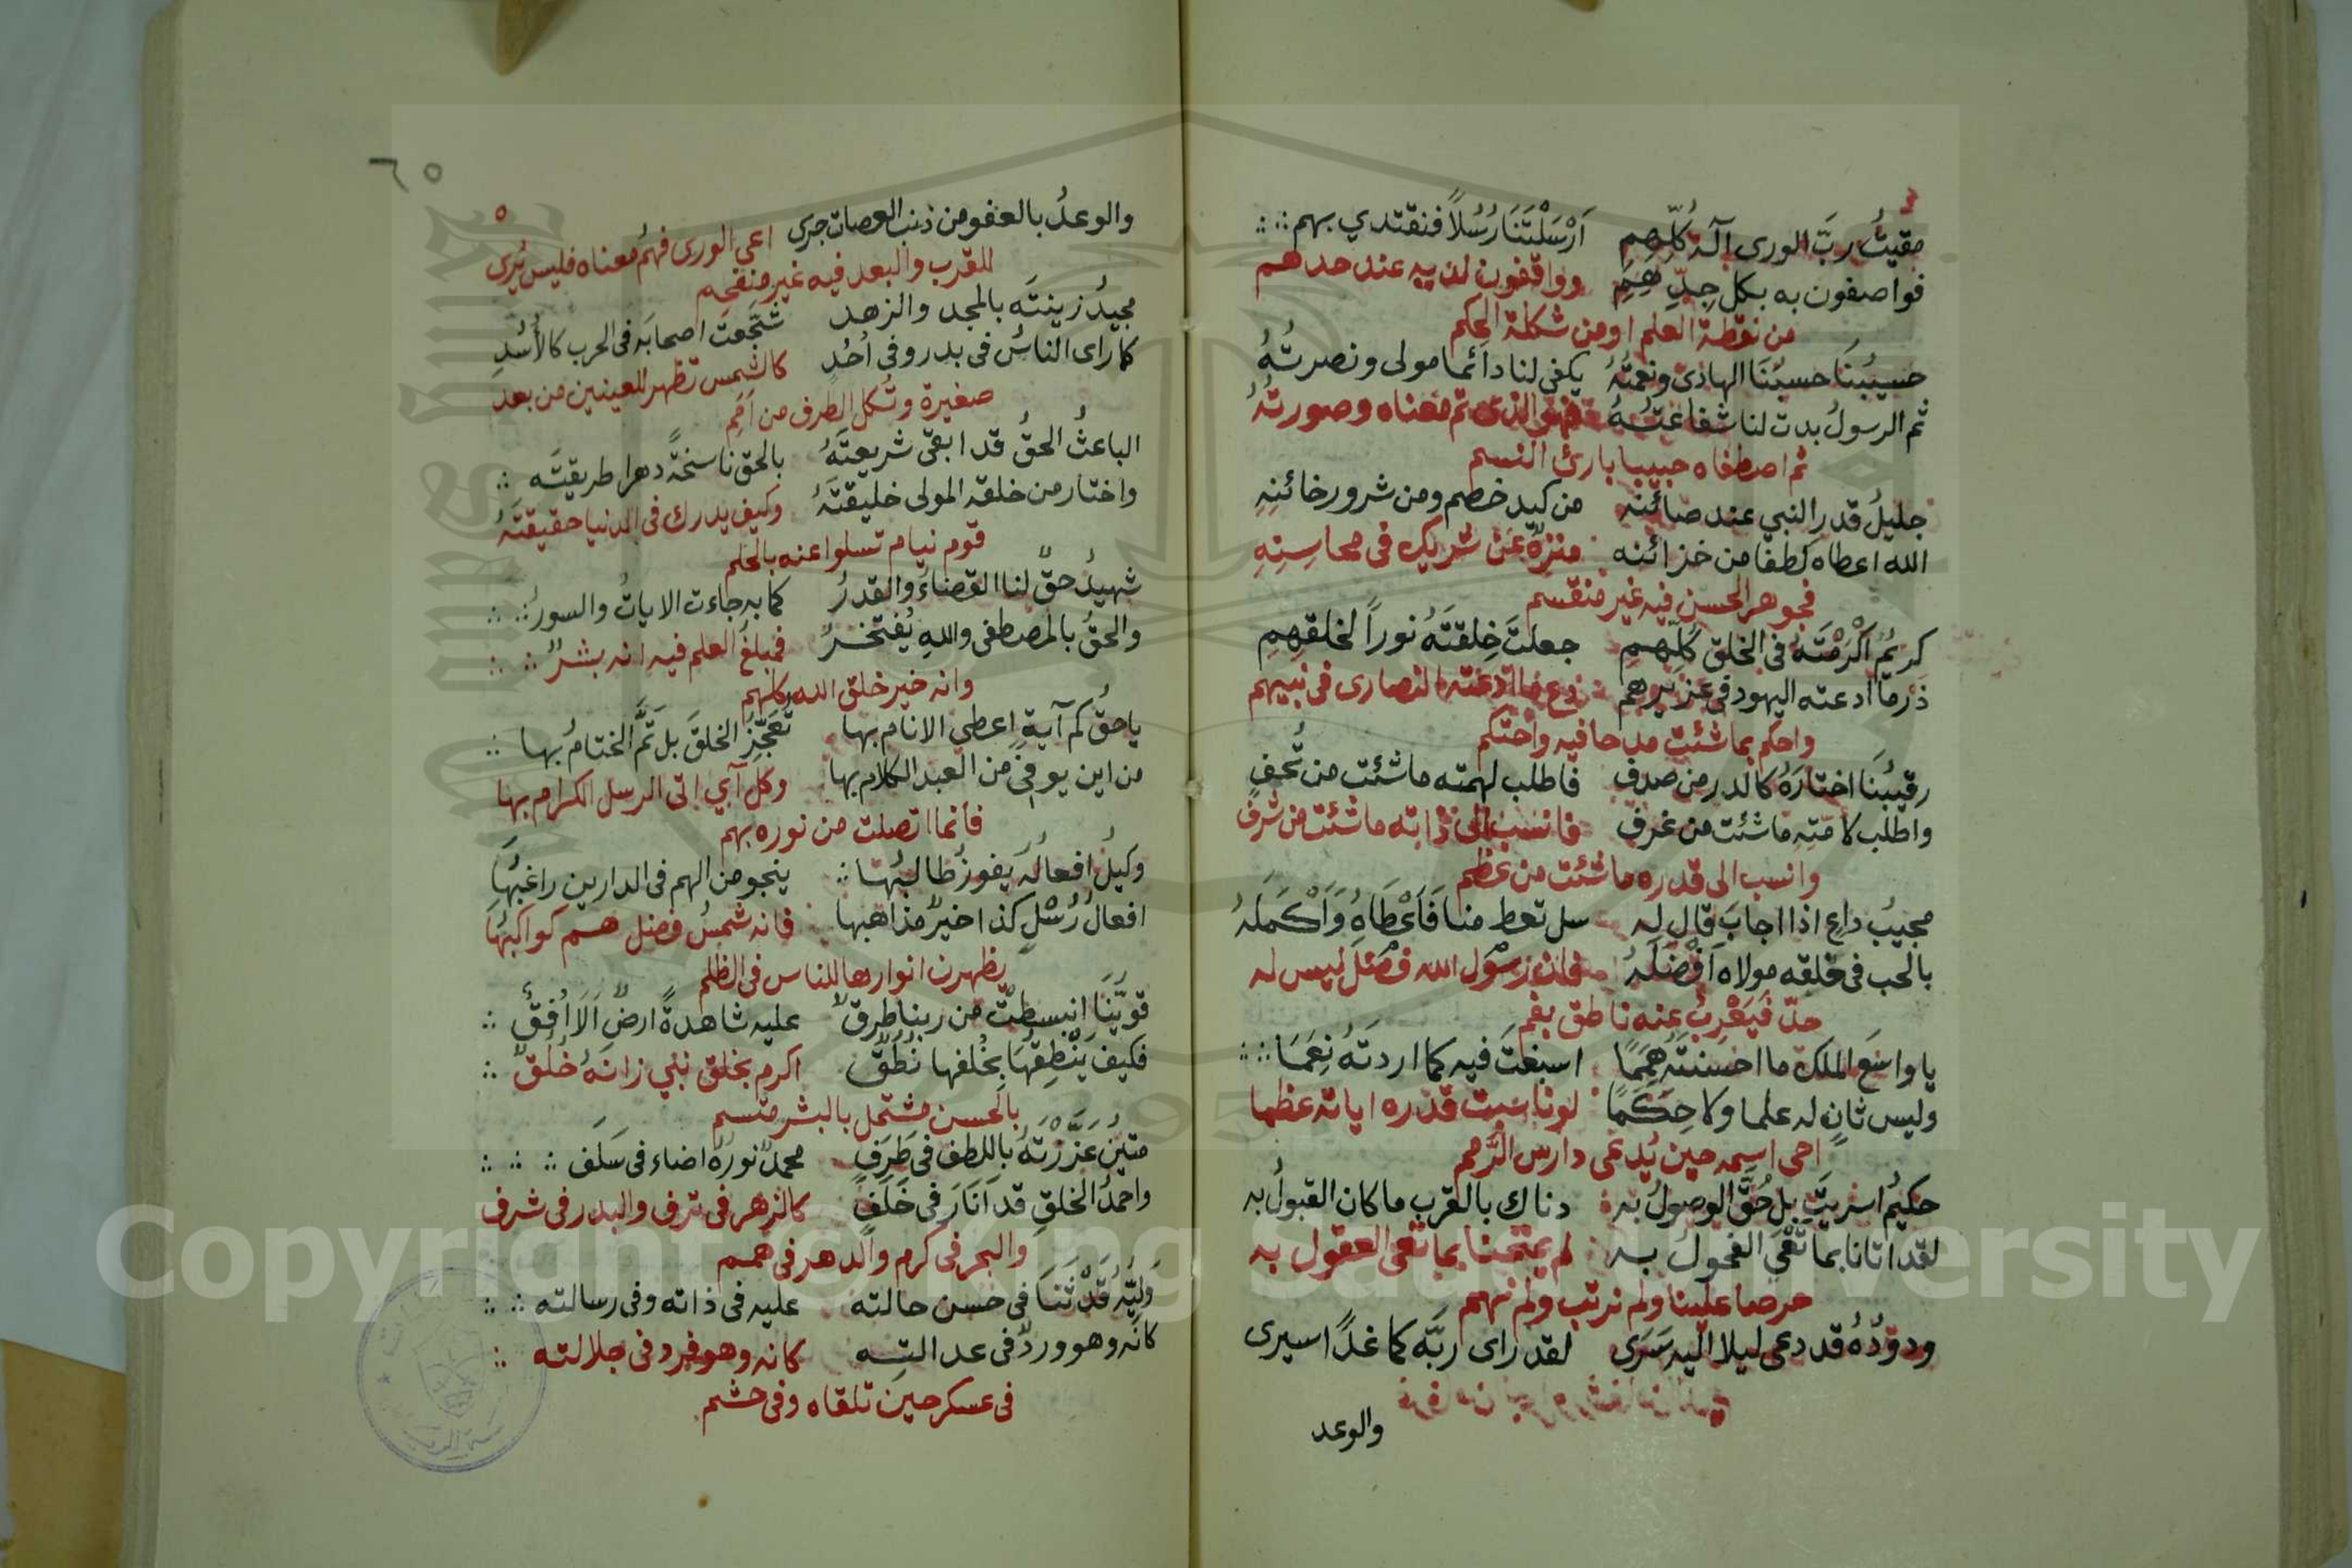 ٤
مقيتُ ربَّ الورى آلـه كُلِّهِمِ    اَرْسَلْتَنَا رُسُلاً فنقتدي بهم
فواصفون به بكل جِدِّهِمِ    وواقفون لديه عند حدهم
من نقطة العلم او من شكلة الحكم
حسيبُنَا حسبُنَا الهادى ونعمتُهُ    يكفى لنا دائما مولى ونصرتُهُ
ثم الرسولُ بدت لنا شفاعتُهُ    فهو الذى تم معناه وصورتُهُ
ثم اصطفاه حبيبا بارئ النسم
جليلُ قدرِ النبي عند صائنهِ    من كيد خصم ومن شرور خائنِهِ
الله اعطاه لطفا من خزائنه    منزهٌ عن شريك فى محاسنِهِ
فجوهر الحسن فيه غير منقسم
كريمُ اَكْرَمْتَهُ فى الخلق كُلِّهِمِ    جعلتَ خِلقتَهُ نوراً لخلقهِمِ
ذرما ادعته اليهود فى عزيرهم    دع ما ادعته النصارى فى نبيهم
واحكم بما شئت مدحا فيه واحتكم
رقيبُنَا اختارَهُ كالدر من صدف    فاطلب لهمته ما شئت من تُحفٍ
واطلب لامتِهِ ما شئت من غرف    فانسب الى ذاته ما شئت من شرف
وانسب الى قدره ما شئت من عظم
مجيبُ داعٍ اذا اجابَ قال له    سل تعط منا فَاَعْطَاهُ وَاَكْمَلَهُ
بالحب فى خلقه مولاه اَفْضَلَهُ    فان رسول الله فضل ليس له
حدّ فَيَعْرِبُ عنه ناطق بفم
يا واسعَ الملك ما احسنتَهُ هِمَمًا    اسبغتَ فيه كما اردتَهُ نِعَمَا
وليس ثانٍ له علما ولا حِكَمًا    لو ناسبت قدره اياته عظما
احى اسمه حين يُدعى دارس الرَّمم
حكيمُ اسريتَ بل حُقَّ الوصولُ به    دناك بالقرب ما كان القبولُ به
لقد اتانا بما تقى الفحولُ به    لم يمتحنا بما تعى العقول به
حرصا علينا ولم نرتب ولم نهم
ودودُهُ قد دعى ليلا اليه سَرَى    لقد راى ربَّه كما غداً اسيرى
والوعد
٦٥
٥
والوعدُ بالعفو من ذنب العصات جرى    اعى الورى فهمُ معناه فليس يُرى
للقرب والبعد فيه غير منفحم
مجيدُ زينتَه بالمجد والزهد    شَجَّعتَ اصحابَه فى الحرب كالأُسُدِ
كما راى الناسُ فى بدر وفى اُحُدٍ    كالشمس تظهر للعينين من بعد
صغيرة وتُكل الطرف من اَمَمِ
الباعثُ الحقُّ قد ابقى شريعتَهُ    بالحق ناسخةً دهرا طريقتَه
واختار من خلقه المولى خليقتَهُ    وكيف يدرك فى الدنيا حقيقتَهُ
قوم نيام تسلوا عنه بالحلم
شهيدُ حقٌّ لنا القضاءُ والقدرُ    كما به جاءت الاياتُ والسورُ
والحقُّ بالمصطفى واللهِ يُفتخرُ    فمبلغُ العلم فيه انه بشرٌ
وانه خير خلق الله كلهم
يا حقُّ كم آيةٍ اعطى الانام بها    تُعَجِّزُ الخلقَ بل تَمَّ الختامُ بها
من اين يوفى من العبد الكلام بها    وكل آي اتى الرسل الكرام بها
فانما اتصلت من نوره بهم
وكيلُ افعالُه يفوزُ طالبُها    ينجو من الهم فى الدارين راغبُهَا
افعالُ رُسْلٍ كذا خيرٌ مذاهبها    فانه شمسُ فضل هم كواكبُهَا
يظهرن انوارها للناس فى الظلم
قويُّنَا انبسطتْ من ربنا طرقٌ    عليه شاهدةً ارضٌ اَلَا اُفُقٌ
فكيف يَنْطِقُهَا بِخُلفها نُطُقٌ    اكرم بخلق نبي زانَهُ خُلُقٌ
بالحسن مشتمل بالبشر متسم
متينُ عَزَّزْتَهُ باللطف فى طَرَفٍ    محمدٌ نورُهُ اضاء فى سَلَف
واحمدُ الخلقِ قد اَنَارَ فى خَلَفٍ    كالزهر فى ترف والبدر فى شرف
والبحر فى كرم والدهر فى همم
وَلِيُّهُ قَدْ ثَنَا فى حسن حالته    عليه فى ذاته وفى رسالته
كانه وهو وردٌ فى عدالتِـه    كانه وهو فرد فى جلالته
فى عسكر حين تلقاه وفى حشم
Copyright © King Saud University